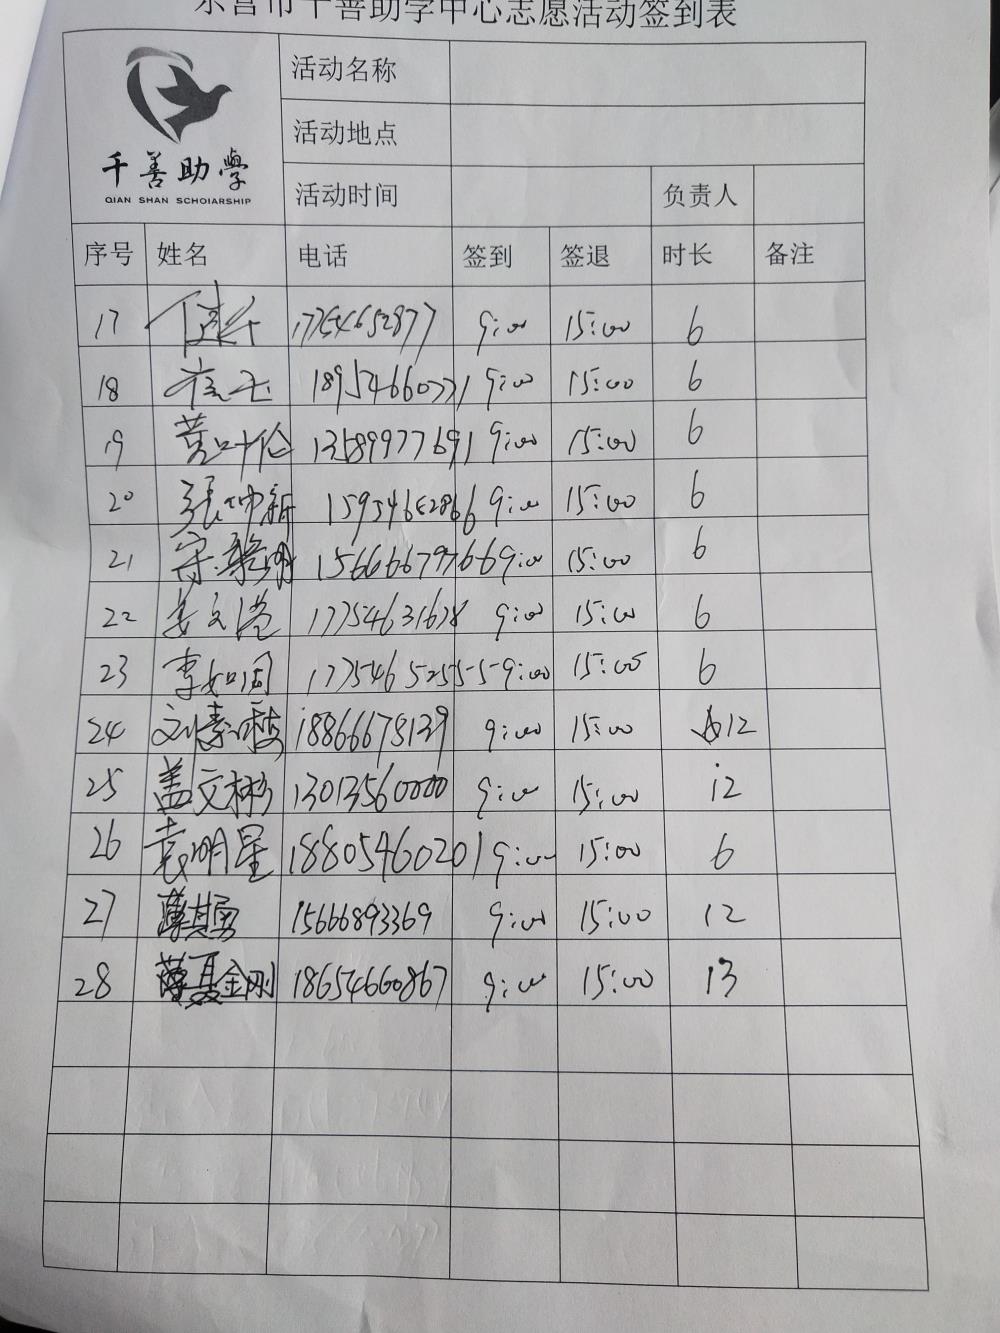 东营市千善助学中心志愿活动签到表
千善助學
QIAN SHAN SCHOIARSHIP
活动名称
活动地点
活动时间 负责人
序号 姓名 电话 签到 签退 时长 备注
17 17754652877 9:00 15:00 6
18 18954660771 9:00 15:00 6
19 黄叶伦 13589977691 9:00 15:00 6
20 张坤新 15954652866 9:00 15:00 6
21 15666679766 9:00 15:00 6
22 姜文港 17754631678 9:00 15:00 6
23 李如同 17754652555 9:00 15:00 6
24 18866678139 9:00 15:00 12
25 盖文彬 13013560000 9:00 15:00 12
26 袁明星 18805460201 9:00 15:00 6
27 薄其勇 15666893369 9:00 15:00 12
28 夏金刚 18654660867 9:00 15:00 13